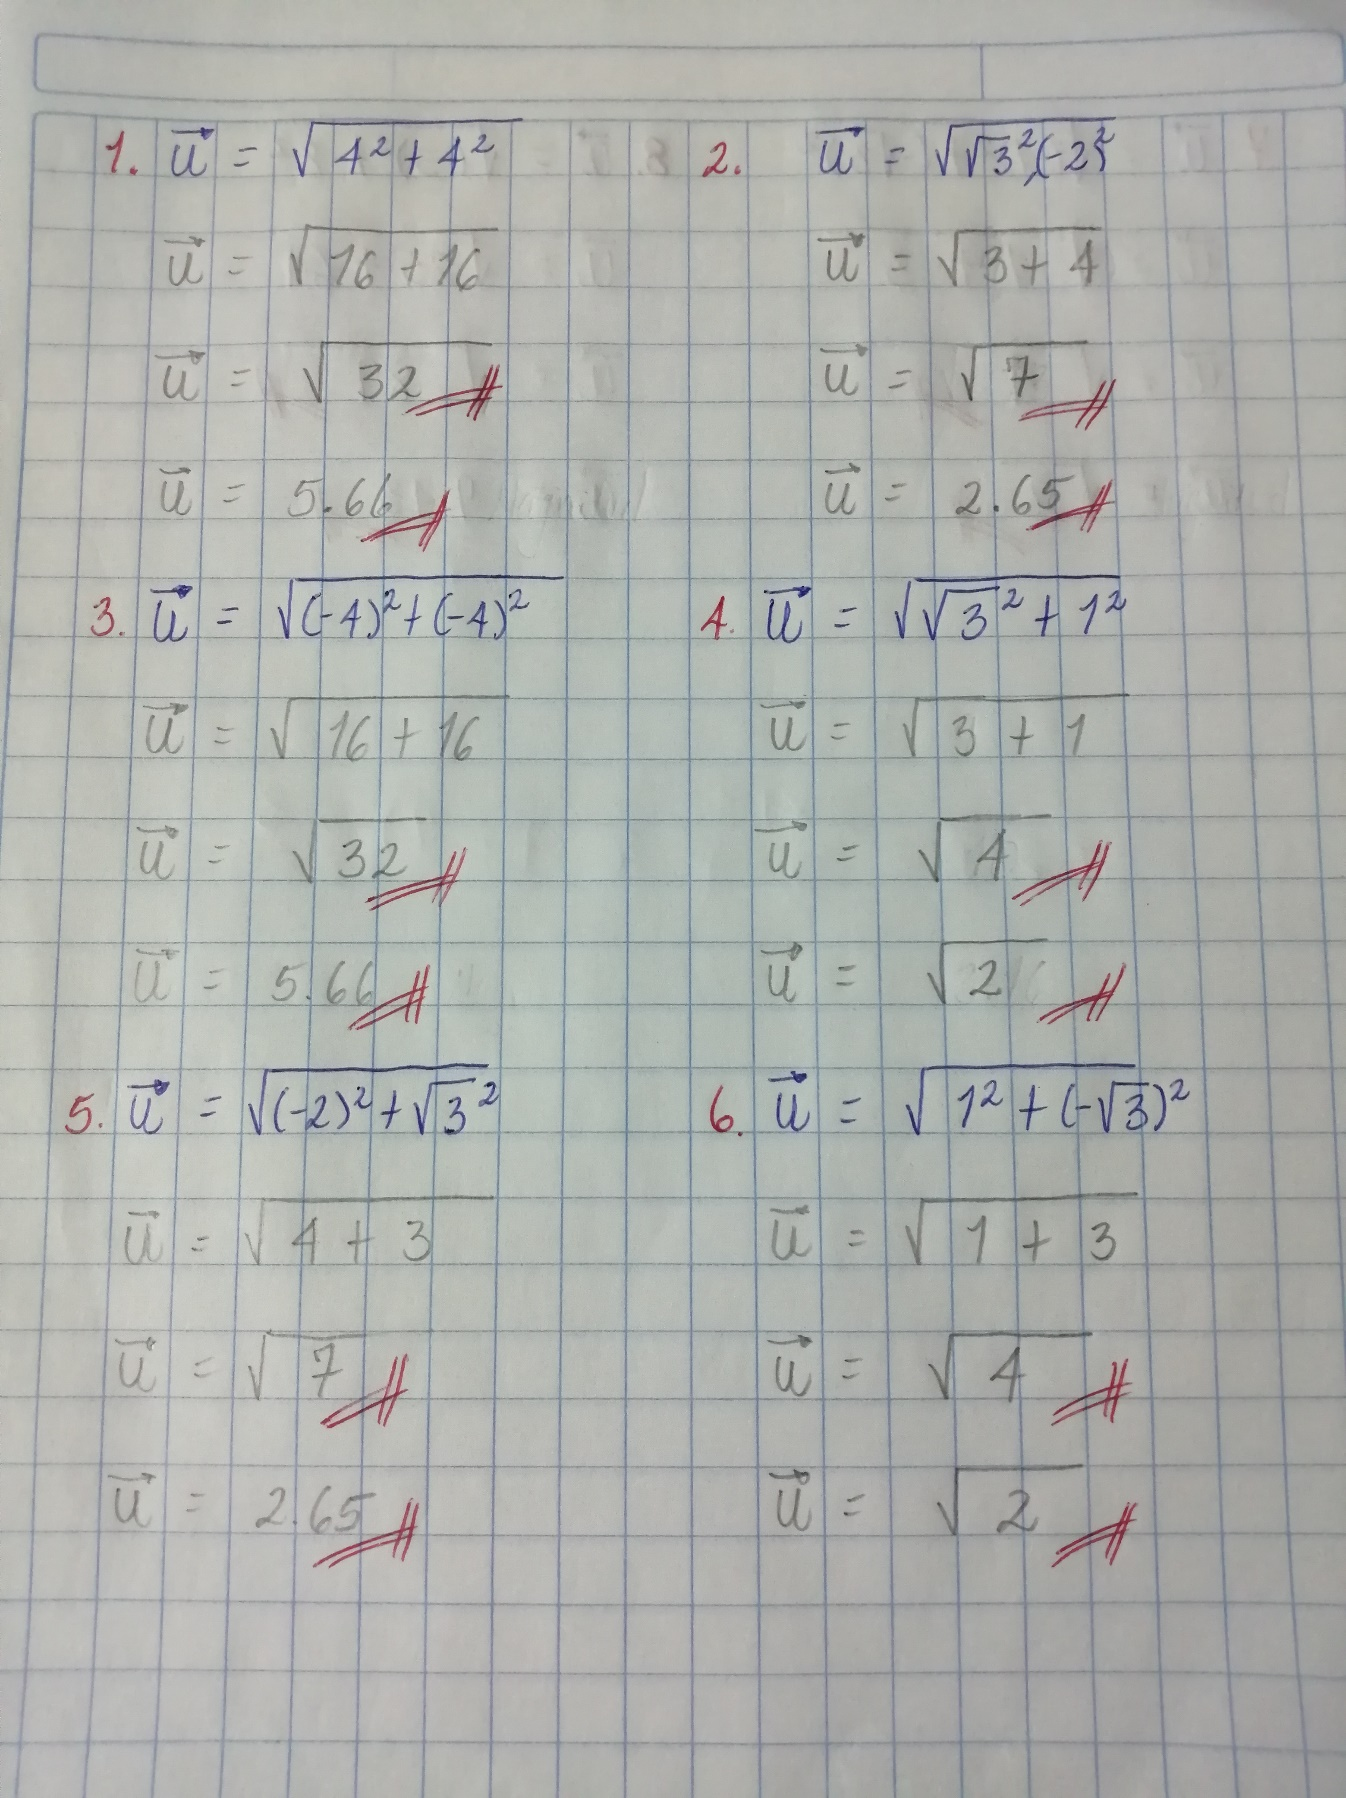 1. u⃗ = √(4² + 4²)
u⃗ = √(16 + 16)
u⃗ = √32
u⃗ = 5.66
2. u⃗ = √(√3², (-2)²
u⃗ = √(3 + 4)
u⃗ = √7
u⃗ = 2.65
3. u⃗ = √((-4)² + (-4)²)
u⃗ = √(16 + 16)
u⃗ = √32
u⃗ = 5.66
4. u⃗ = √(√3² + 1²)
u⃗ = √(3 + 1)
u⃗ = √4
u⃗ = √2
5. u⃗ = √((-2)² + √3²)
u⃗ = √(4 + 3)
u⃗ = √7
u⃗ = 2.65
6. u⃗ = √(1² + (-√3)²)
u⃗ = √(1 + 3)
u⃗ = √4
u⃗ = √2